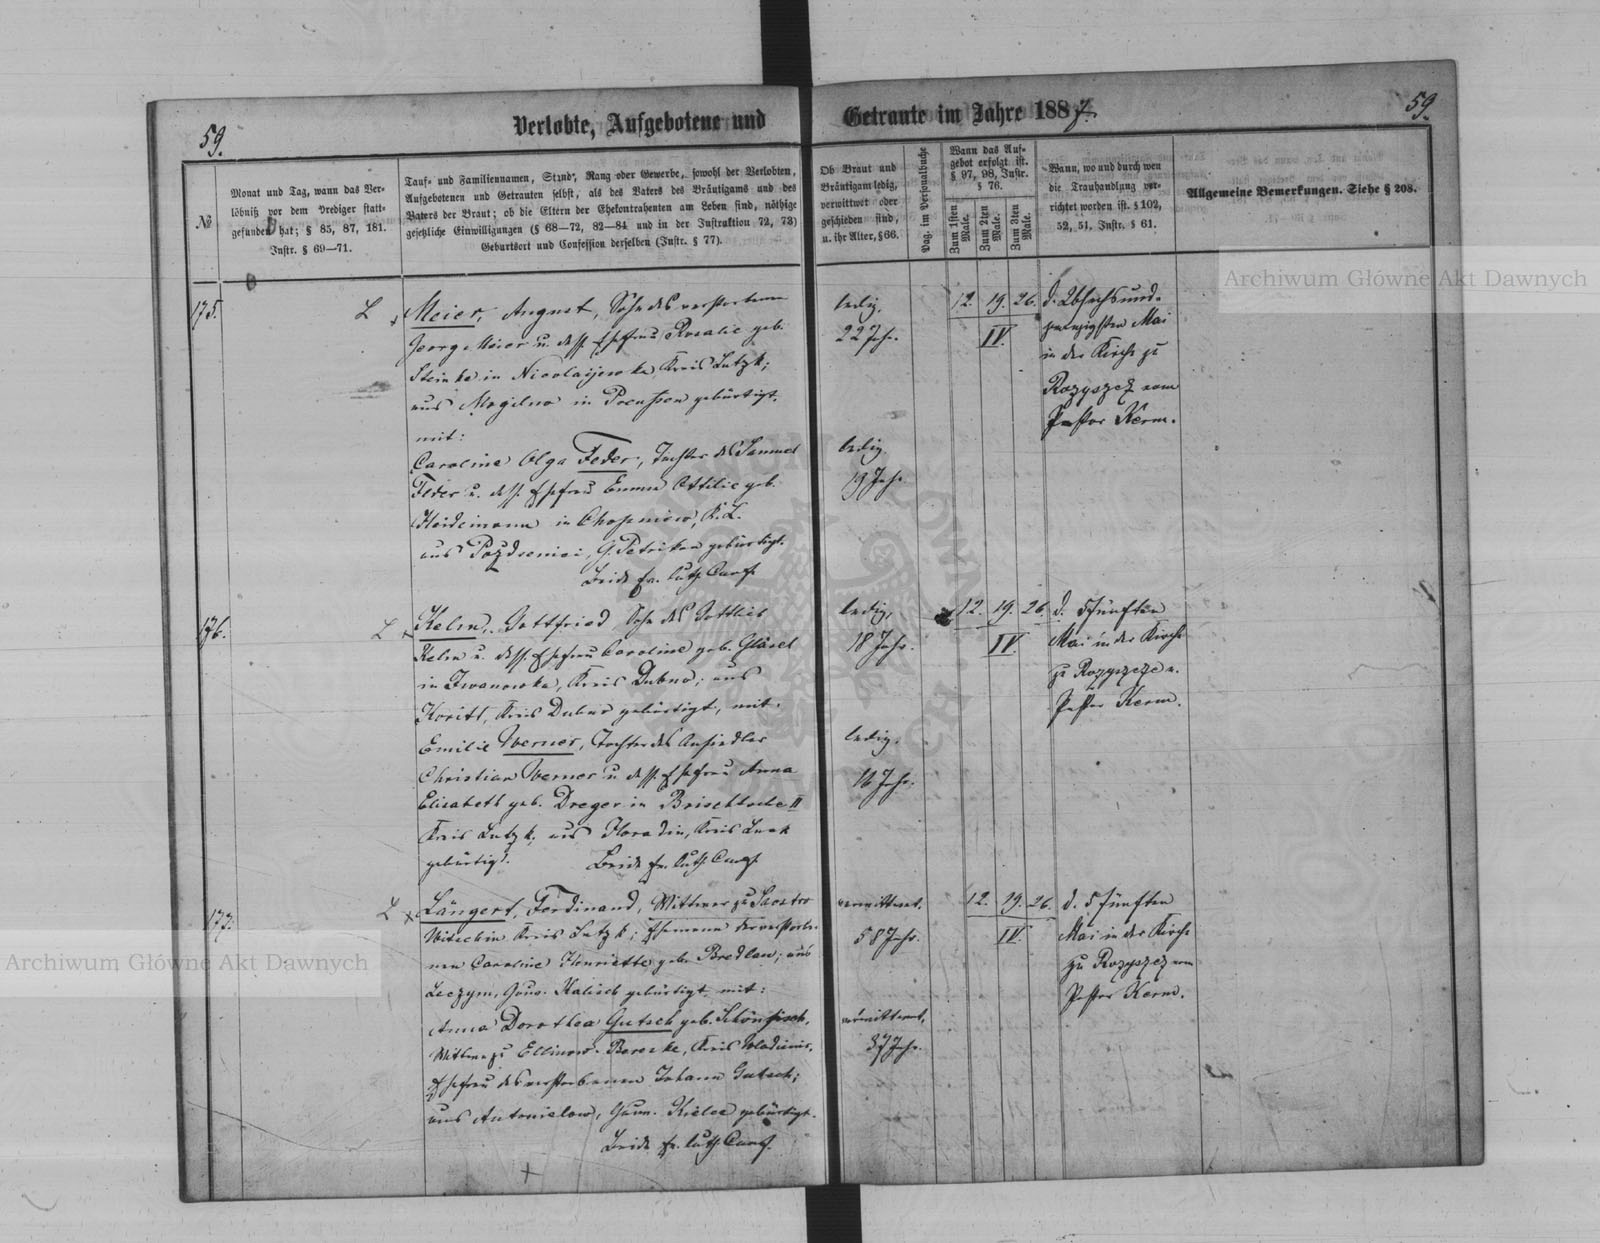 59.
Verlobte, Aufgebotene und
Getraute im Jahre 1887.
59.
№
Monat und Tag, wann das Ver-
löbniß vor dem Prediger statt-
gefunden hat; § 85, 87, 181.
Instr. § 69—71.
Tauf- und Familiennamen, Stand, Rang oder Gewerbe, sowohl der Verlobten,
Aufgebotenen und Getrauten selbst, als des Vaters des Bräutigams und des
Vaters der Braut; ob die Eltern der Ehekontrahenten am Leben sind, nöthige
gesetzliche Einwilligungen (§ 68—72, 82—84 und in der Instruktion 72, 73)
Geburtsort und Confession derselben (Instr. § 77).
Ob Braut und
Bräutigam ledig,
verwittwet oder
geschieden sind,
u. ihr Alter, § 66.
Pag. im Personalbuche
Wann das Auf-
gebot erfolgt ist.
§ 97, 98, Instr.
§ 76.
Zum 1sten Male.
Zum 2ten Male.
Zum 3ten Male.
Wann, wo und durch wen
die Trauhandlung ver-
richtet worden ist. § 102,
52, 51. Instr. § 61.
Allgemeine Bemerkungen. Siehe § 208.
175.
L
Meier, August, Sohn des verstorbenen
Georg Meier u. dess. Ehefrau Rosalie geb.
Steinke in Nicolaijewka, Kreis Lutzk;
aus Mogilno in Preußen gebürtigt.
mit:
Caroline Olga Feder, Tochter des Samuel
Feder u. dess. Ehefrau Emma Ottilie geb.
Heidemann in K. L.
aus G. Petrikau gebürtigt.
Beide ev. luth. Conf.
ledig.
22 Jahr.
ledig.
19 Jahr.
12. 19. 26.
IV.
d. Sechsund-
zwanzigsten Mai
in der Kirche zu
Rozyszcz vom
Pastor Kerm.
176.
L
Kelm, Gottfried Sohn des Gottlieb
Kelm u. dess. Ehefrau Caroline geb. Gläsel
in Iwanowka, Kreis Dubno; aus
Koritt, Kreis Dubno gebürtigt, mit.
Emilie Werner, Tochter des Ansiedler
Christian Werner u. dess. Ehefrau Anna
Elisabeth geb. Dreger in II
Kreis Lutzk; aus Kreis Luck
gebürtigt. Beide ev. luth. Conf.
ledig,
18 Jahr.
ledig.
16 Jahr.
12. 19. 26.
IV.
d. Fünften
Mai in der Kirche
zu Rozyszcze v.
Pastor Kerm.
177.
L
Längert, Ferdinand, Wittwer zu
Kreis Lutzk; Ehemann der verstorbe-
nen Caroline Henriette geb. Bredlau; aus
Gouv. Kalisch gebürtigt. mit:
Anna Dorothea Gutsch geb.
Wittwe zu Kreis Wladimir,
Ehefrau des verstorbenen Johann Gutsch;
aus Antonielow, Gouv. Kielce gebürtigt.
Beide ev. luth. Conf.
verwittwet.
58 Jahr.
verwittwet.
37 Jahr.
12. 19. 26.
IV.
d. Fünften
Mai in der Kirche
zu Rozyszcz vom
Pastor Kerm.
Archiwum Główne Akt Dawnych
Archiwum Główne Akt Dawnych